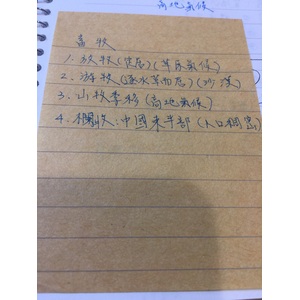 高地氣候
畜牧
1. 放牧(定居)(草原氣候)
2. 游牧(逐水草而居)(沙漠)
3. 山牧季移(高地氣候)
4. 欄牧:中國東半部(人口稠密)